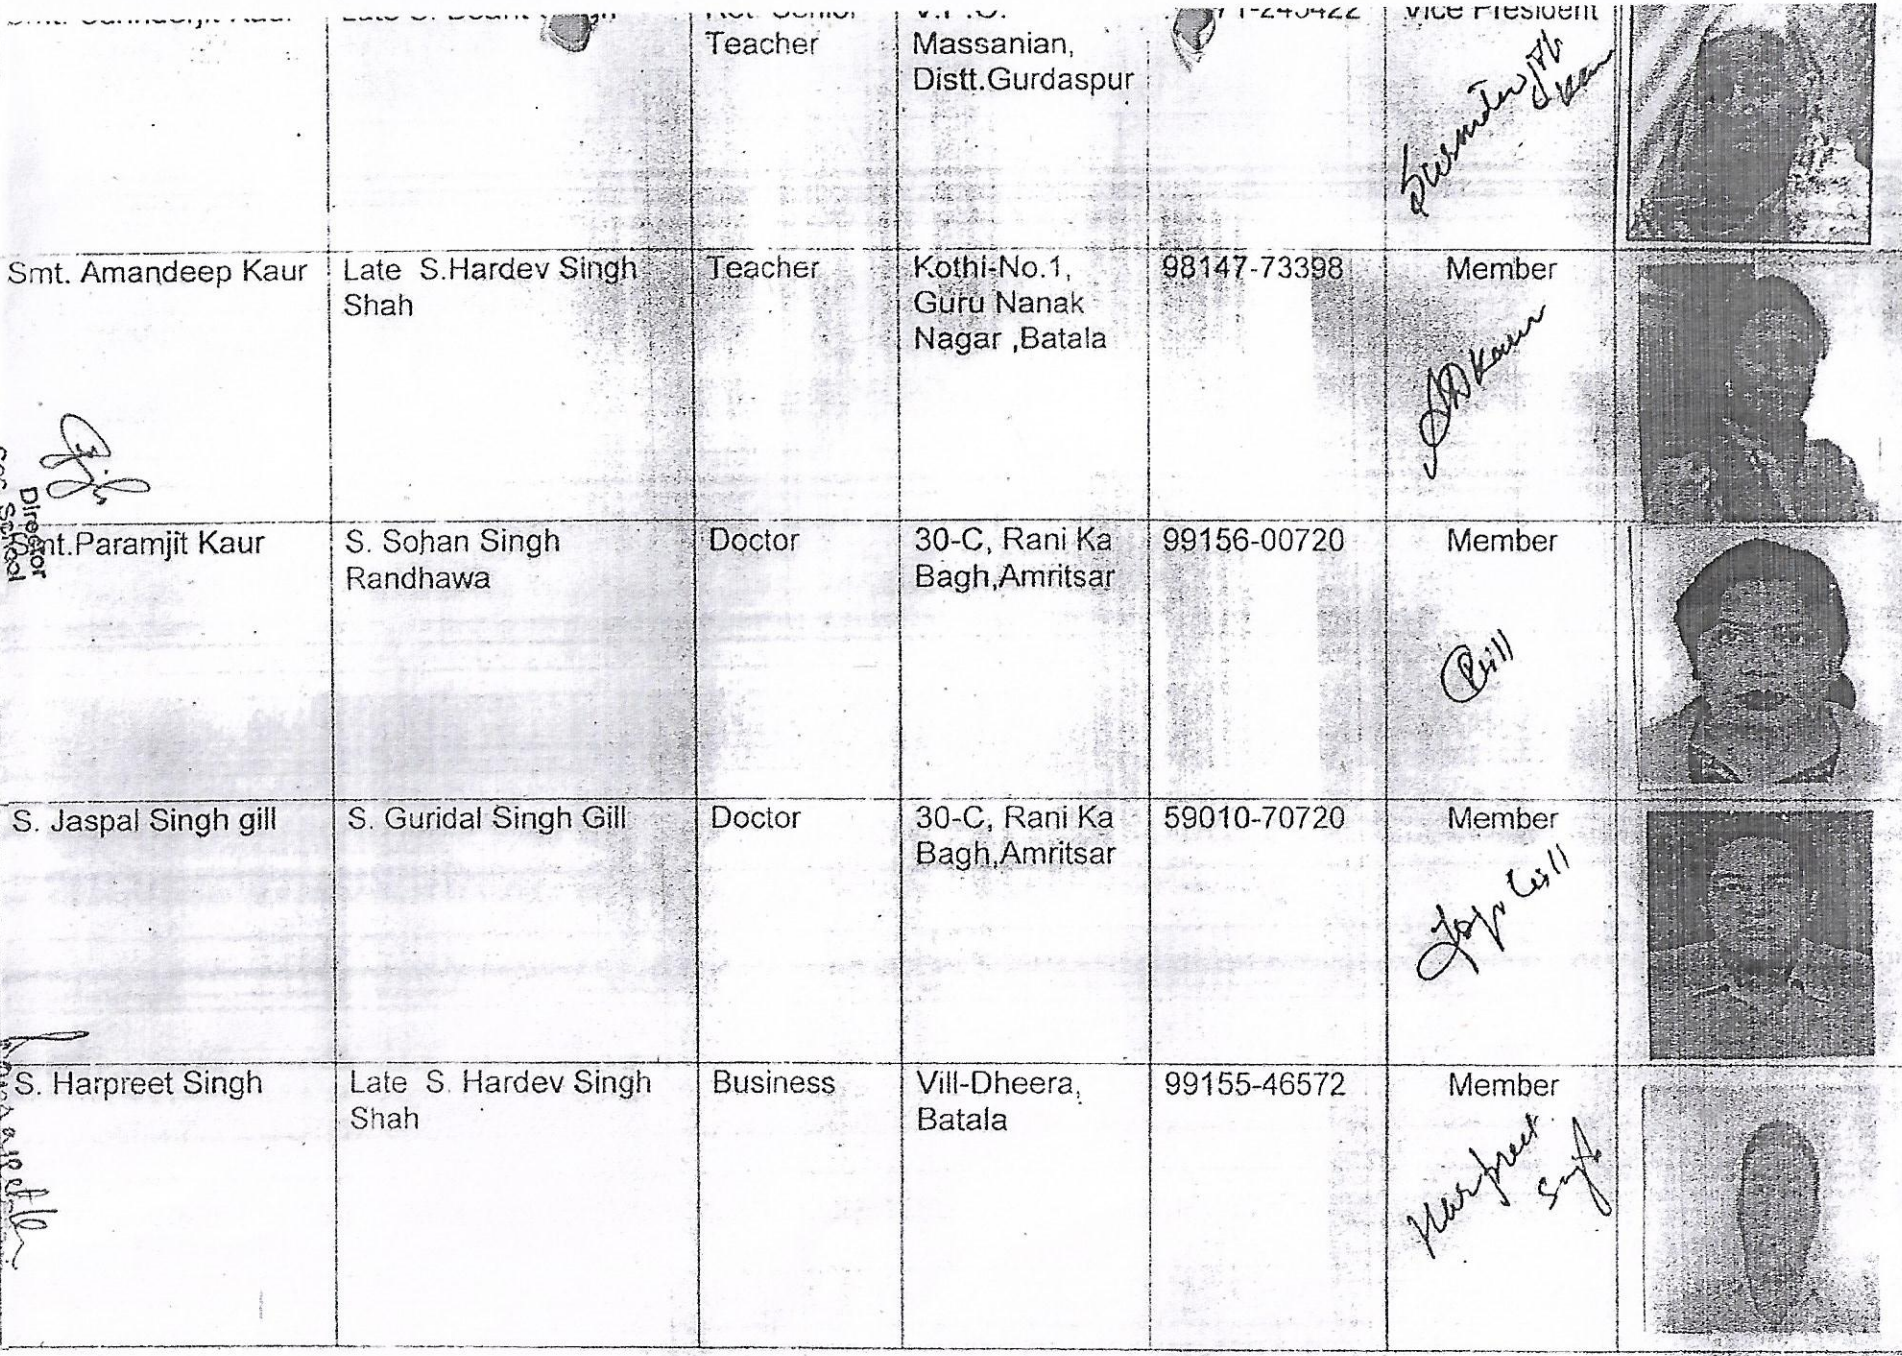 Teacher
Massanian,
Distt.Gurdaspur
Vice President
Kaur
Smt. Amandeep Kaur
Late S.Hardev Singh
Shah
Teacher
Kothi-No.1,
Guru Nanak
Nagar ,Batala
98147-73398
Member
Kaur
Director
School
Smt.Paramjit Kaur
S. Sohan Singh
Randhawa
Doctor
30-C, Rani Ka
Bagh,Amritsar
99156-00720
Member
Gill
S. Jaspal Singh gill
S. Guridal Singh Gill
Doctor
30-C, Rani Ka
Bagh,Amritsar
59010-70720
Member
Gill
S. Harpreet Singh
Late S. Hardev Singh
Shah
Business
Vill-Dheera,
Batala
99155-46572
Member
Harpreet
Singh